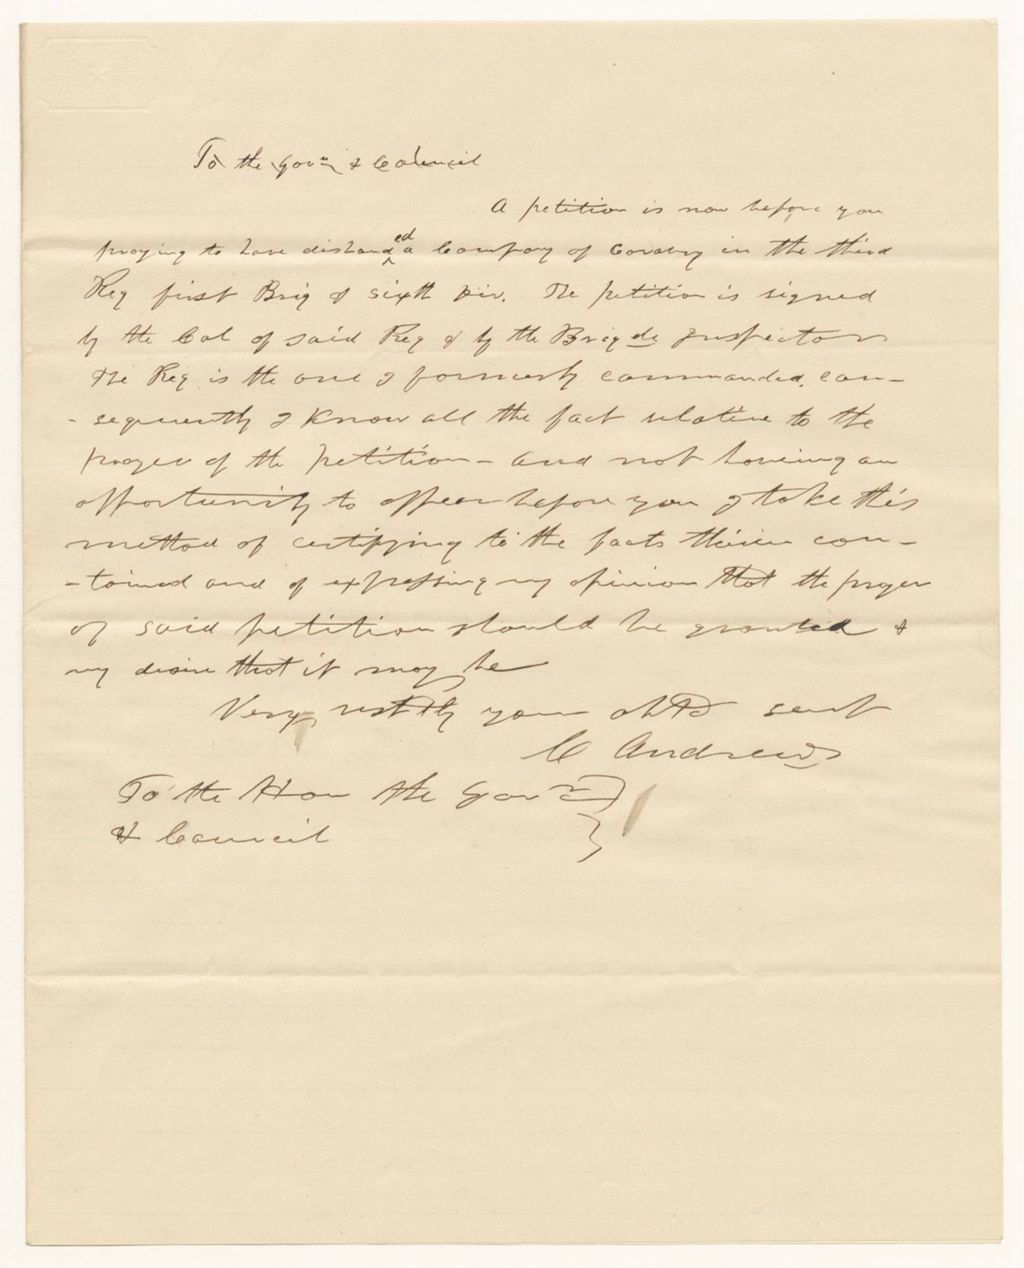 To the Govr & Council
A petition is now before you
praying to have disbanded a Company of Cavalry in the third
Reg first Brig & sixth Div. The petition is signed
by the Col of said Reg & by the Brigde Inspector
The Reg is the one I formerly commanded, con-
-sequently I know all the fact relative to the
prayer of the petition - and not haveing an
opportunity to appear before you I take this
method of certifying to the facts therein con-
-tained and of expressing my opinion that the prayer
of said petition should be granted &
my desire that it may be
Very restfly your obt servt
C Andrews
To the Hon the Govr
& Council